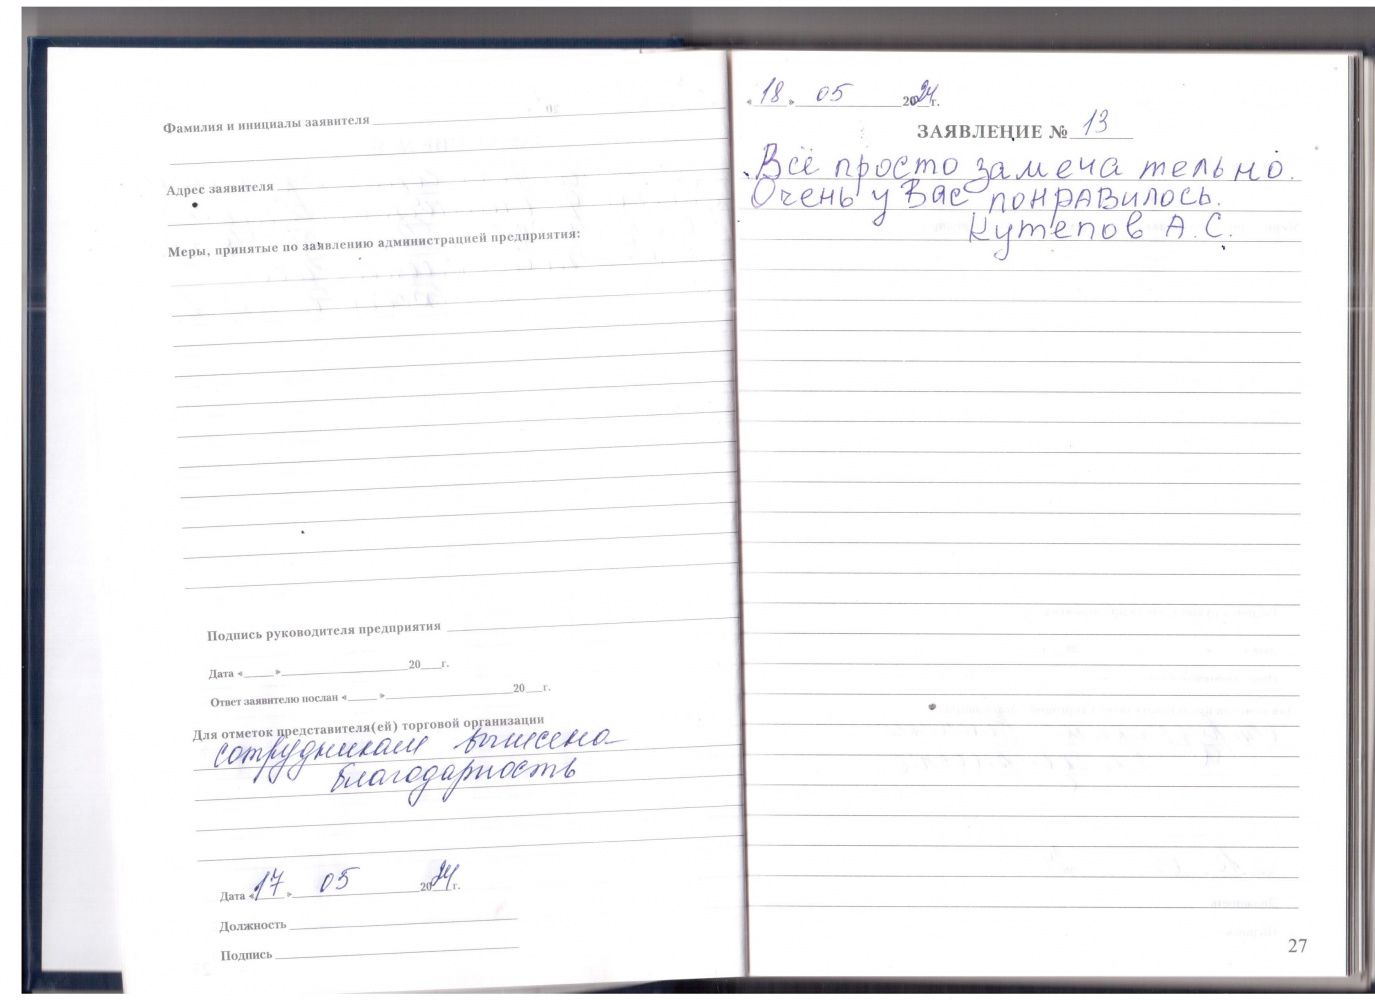 Фамилия и инициалы заявителя
Адрес заявителя
Меры, принятые по заявлению администрацией предприятия:
Подпись руководителя предприятия
Дата «___»___20___г.
Ответ заявителю послан «___»___20___г.
Для отметок представителя(ей) торговой организации
сотрудникам вынесена
благодарность
Дата «17» 05 2024 г.
Должность
Подпись
«18» 05 2024 г.
ЗАЯВЛЕНИЕ № 13
Всё просто замечательно.
Очень у Вас понравилось.
Кутепов А.С.
27